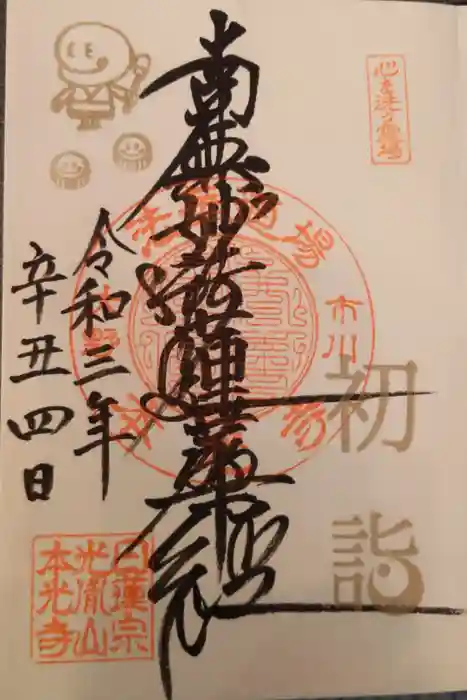 心を洗う霊場
初詣
南無妙法蓮華経
道場
市川
令和三年
辛丑四日
日蓮宗
光胤山
本光寺